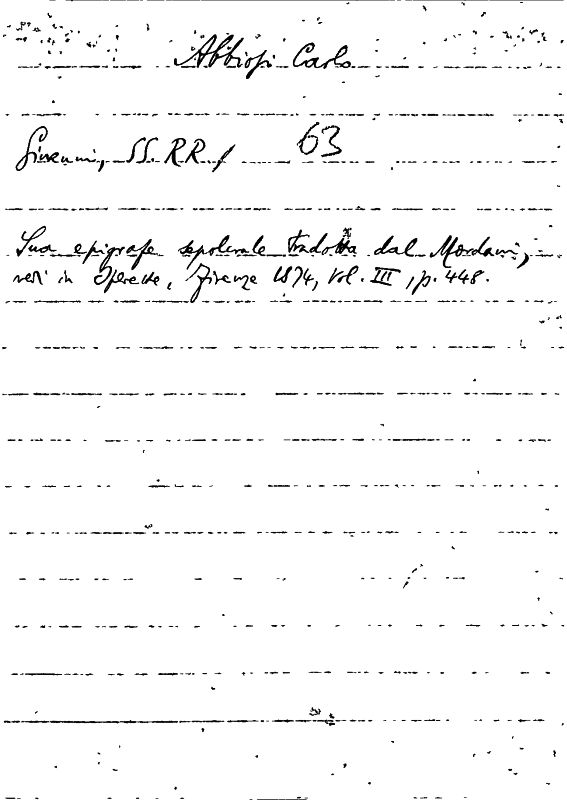 Abbiosi Carlo
Ginanni, SS. RR. / 63
Sua epigrafe sepolcrale tradotta dal Mordani,
vedi in Operette, Firenze 1874, Vol. III, p. 448.